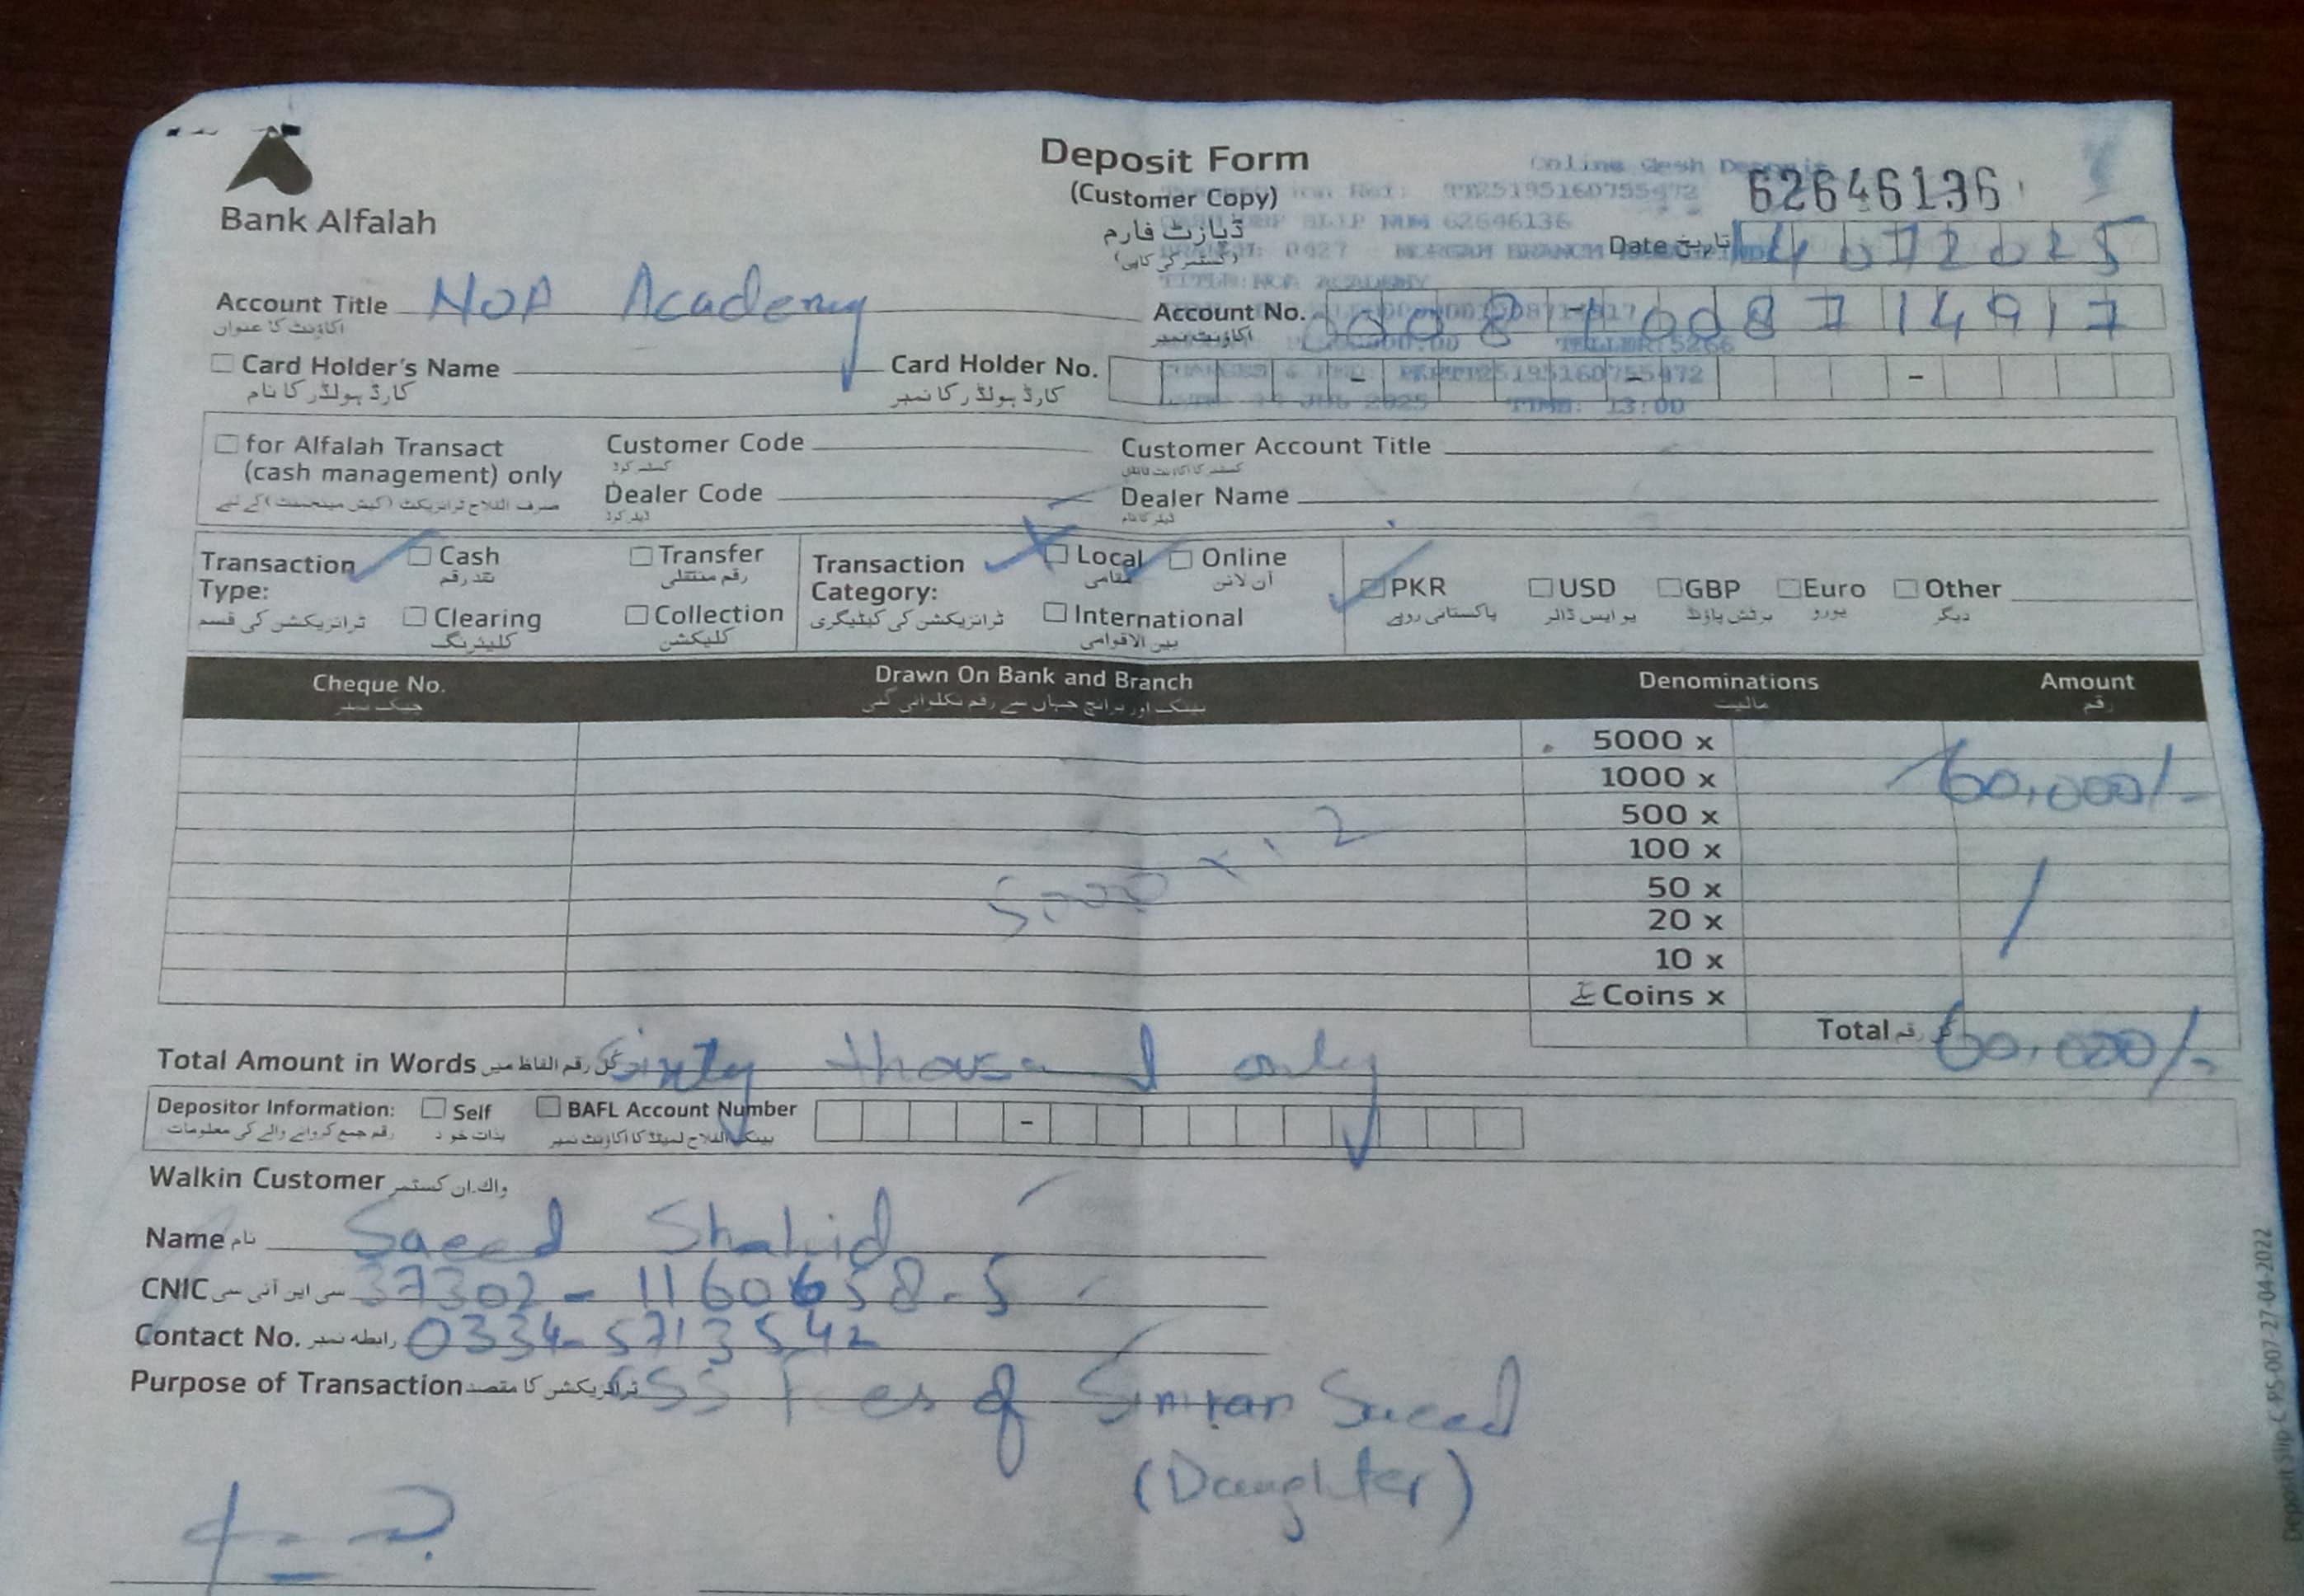 Deposit Form
(Customer Copy)
ڈپازٹ فارم
(کسٹمر کی کاپی)
Bank Alfalah
Online Cash Deposit
Ref: TT25195160755972
SLIP NUM 62646136
62646136
0427 MORGAH BRANCH
TITLE: NOA ACADEMY
Date تاریخ 14072025
Account Title NOA Academy
اکاؤنٹ کا عنوان
Account No. 0008-1008714917
اکاؤنٹ نمبر
TELLER:5266
Card Holder's Name
کارڈ ہولڈر کا نام
Card Holder No.
کارڈ ہولڈر کا نمبر
JUL 2025 TIME: 13:00
for Alfalah Transact
(cash management) only
صرف الفلاح ٹرانزیکٹ (کیش مینجمنٹ) کے لئے
Customer Code
کسٹمر کوڈ
Customer Account Title
کسٹمر کا اکاؤنٹ ٹائٹل
Dealer Code
ڈیلر کوڈ
Dealer Name
ڈیلر کا نام
Transaction Type:
ٹرانزیکشن کی قسم
Cash
نقد رقم
Transfer
رقم منتقلی
Clearing
کلیئرنگ
Collection
کلیکشن
Transaction Category:
ٹرانزیکشن کی کیٹیگری
Local
مقامی
Online
آن لائن
International
بین الاقوامی
PKR
پاکستانی روپے
USD
یو ایس ڈالر
GBP
برٹش پاؤنڈ
Euro
یورو
Other
دیگر
Cheque No. Drawn On Bank and Branch Denominations Amount
چیک نمبر بینک اور برانچ جہاں سے رقم نکلوائی گئی مالیت رقم
5000 x
1000 x 60,000/-
500 x
100 x
5000 x 12
50 x
20 x
10 x
Coins x
Total کل رقم 60,000/-
Total Amount in Words کل رقم الفاظ میں Sixty thousand only
Depositor Information: Self BAFL Account Number
رقم جمع کروانے والے کی معلومات بذات خود بینک الفلاح لمیٹڈ کا اکاؤنٹ نمبر
Walkin Customer واک ان کسٹمر
Name نام Saeed Shahid
CNIC سی این آئی سی 37302-1160658-5
Contact No. رابطہ نمبر 0334-5713542
Purpose of Transaction ٹرانزیکشن کا مقصد CSS Fees of Simran Saeed
(Daughter)
Deposit Slip-C-PS-007-27-04-2022